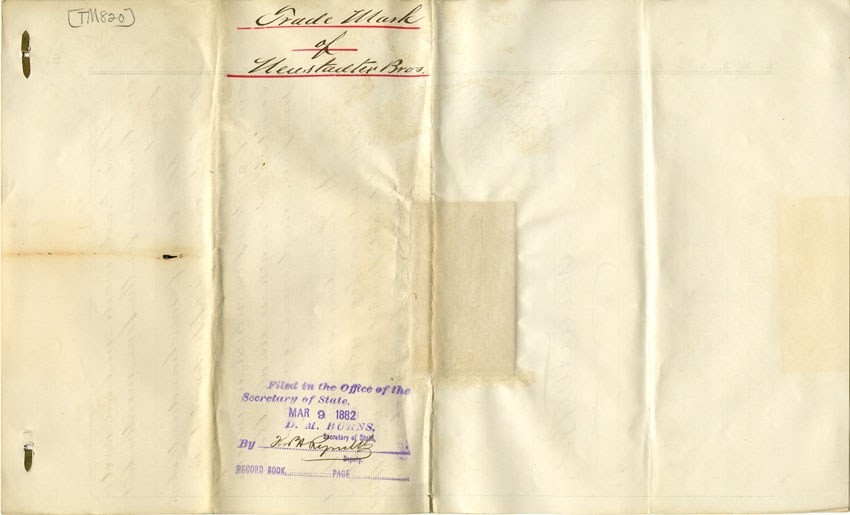 [TM820]
Trade Mark
of
Neustadter Bros.
Filed in the Office of the
Secretary of State,
MAR 9 1882
D. M. BURNS,
Secretary of State,
By
Deputy.
RECORD BOOK PAGE